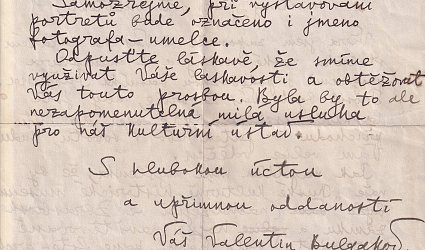 Samozřejmě, při vystavování
portretů bude označeno i jmeno
fotografa-umelce.
Odpusťte laskavě, že smíme
využívat Vaše laskavosti a obtěžovat
Vás touto prosbou. Byla by to ale
nezapomenutelná milá usluha
pro náš Kulturní ústav.
S hlubokou úctou
a upřimnou oddaností
Váš Valentin Bulgakov.